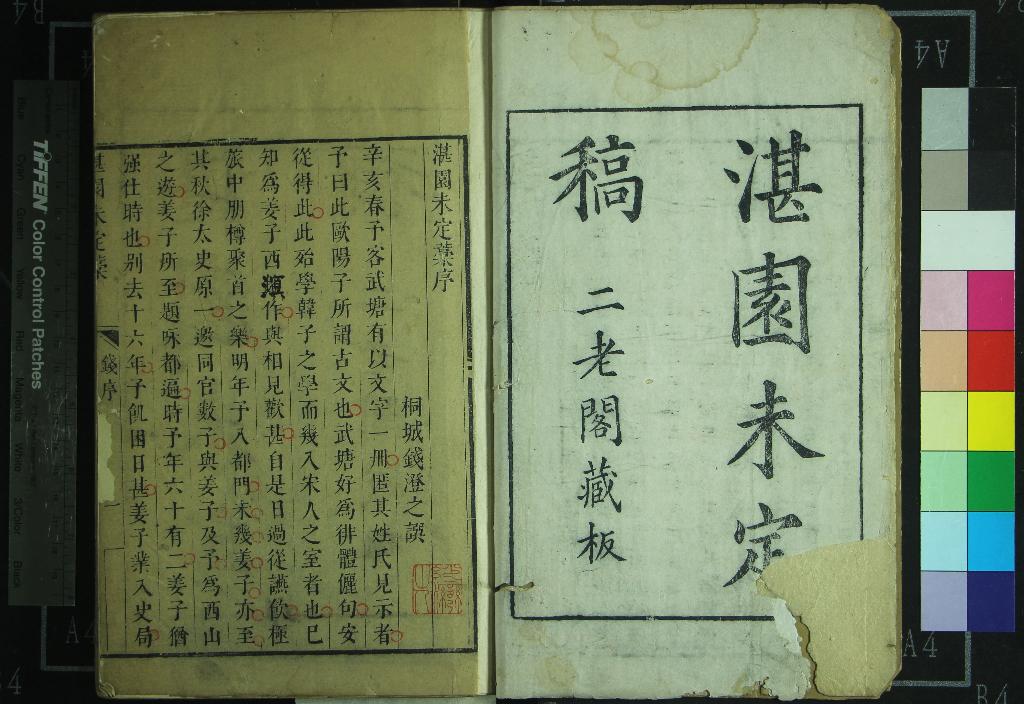 湛園未定
稿
二老閣藏板
湛園未定藁序
桐城錢澄之譔
辛亥春予客武塘有以文字一冊匿其姓氏見示者
予曰此歐陽子所謂古文也武塘好為徘體儷句安
從得此此殆學韓子之學而幾入宋人之室者也已
知為姜子西溟作與相見歡甚自是日過從讌飲極
旅中朋樽聚首之樂明年予入都門未幾姜子亦至
其秋徐太史原一邀同官數子與姜子及予為西山
之遊姜子所至題咏都遍時予年六十有二姜子猶
强仕時也别去十六年予飢困日甚姜子業入史局
湛園未定藁
錢序
一
TIFFEN Color Control Patches
Blue
Cyan
Green
Yellow
Red
Magenta
White
3/Color
Black
A4
A4
A4
B4
B4